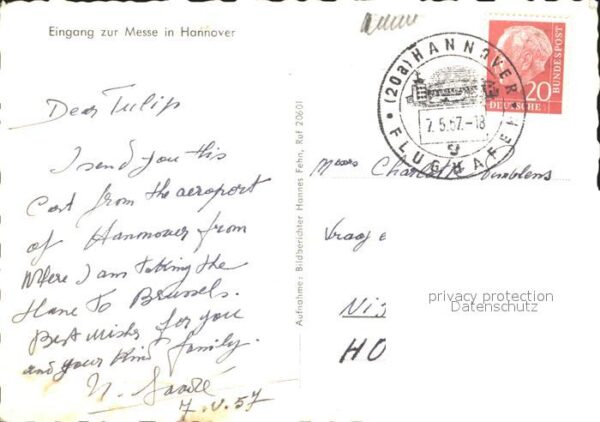 Eingang zur Messe in Hannover
Dear Tulip
I send you this
Card from the aeroport
of Hannover from
Where I am taking the
Plane To Brussels.
Best wishes for you
and your kind family.
7.V.57
Aufnahme: Bildberichter Hannes Fehn, Ruf 20601
(20a) HANNOVER
7.5.57.-18
g
FLUGHAFEN
DEUTSCHE
BUNDESPOST
20
Charlotte
privacy protection
Datenschutz
HO